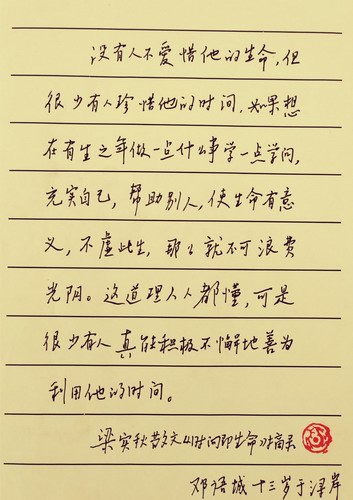 没有人不爱惜他的生命,但
很少有人珍惜他的时间,如果想
在有生之年做一点什么事学一点学问,
充实自己,帮助别人,使生命有意
义,不虚此生,那么就不可浪费
光阴。这道理人人都懂,可是
很少有人真能积极不懈地善为
利用他的时间。
梁实秋散文《时间即生命》摘录
邓语城十三岁于泽岸